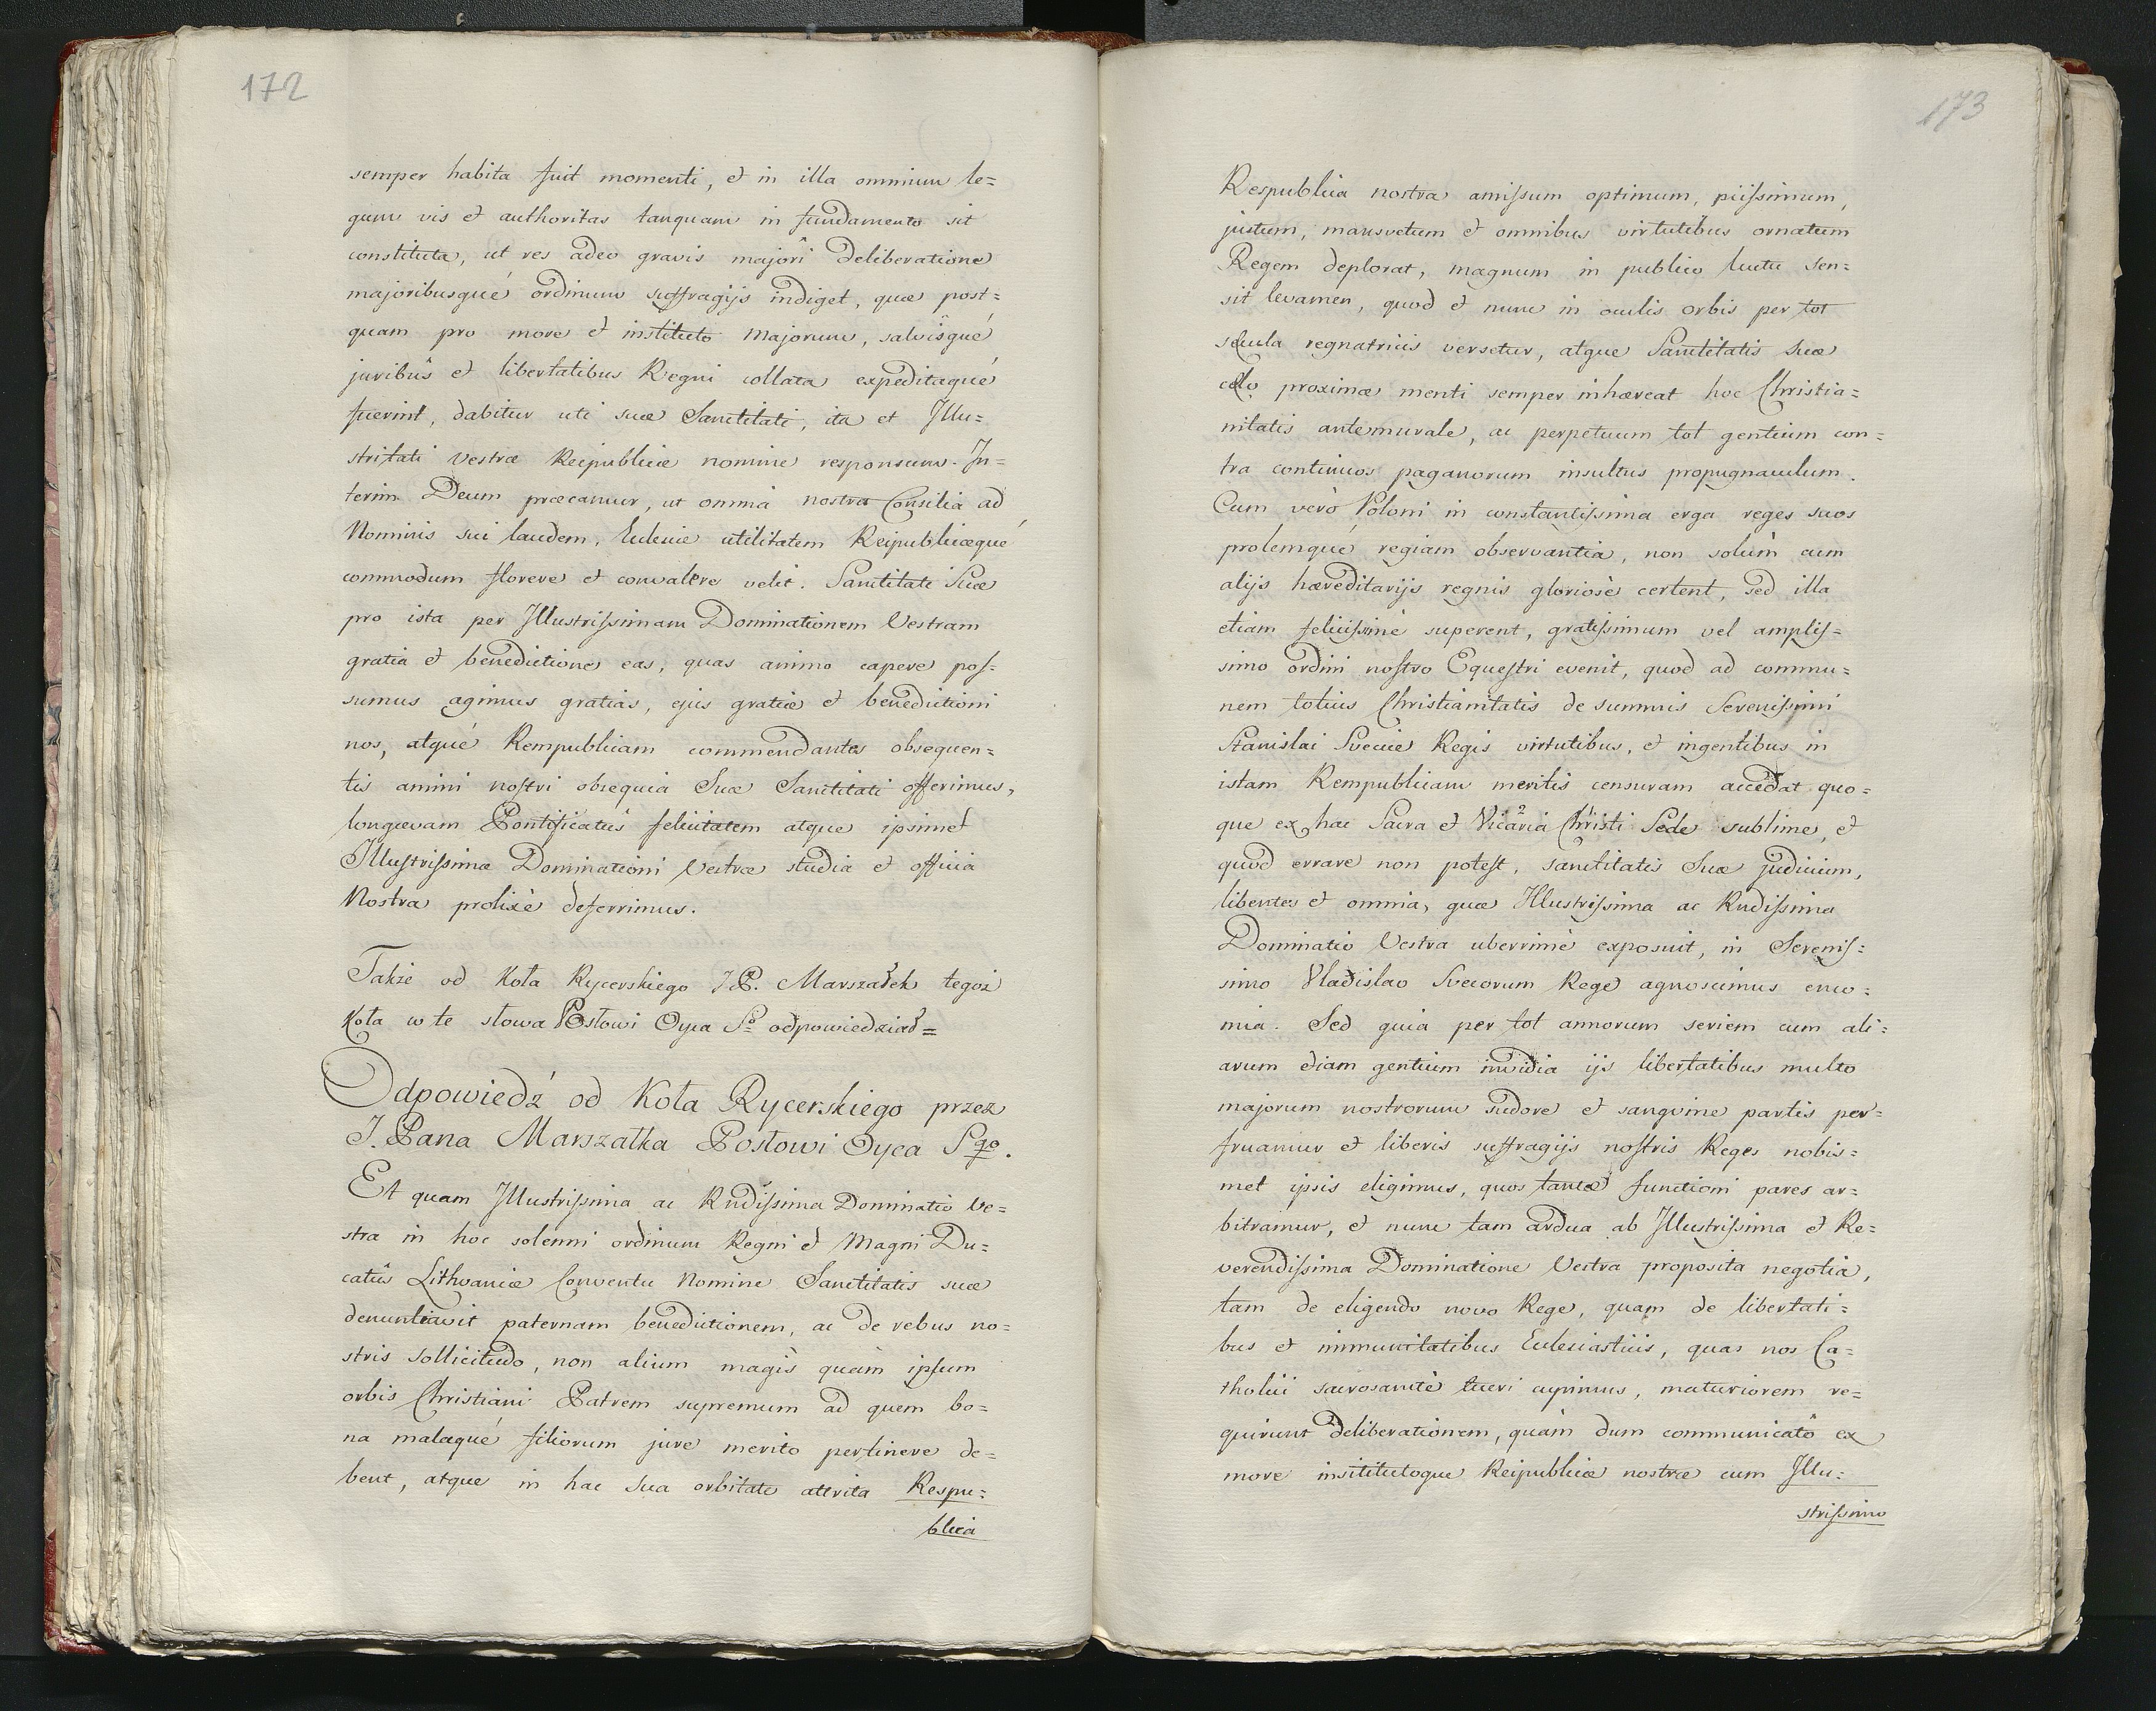 172
semper habita fuit momenti, et in illa omnium le=
gum vis et authoritas tanquam in fundamento sit
constituta, ut res adeo gravis majori Deliberatione
majoribusqué ordinum suffragijs indiget, quæ post=
quam pro more et instituto Majorum, salvisqué
juribus et libertatibus Regni collata expeditaqué
fuerint, dabitur uti suæ Sanctitati, ita et Illu=
stritati Vestræ Reipublicæ nomine responsum. In=
terim Deum præcamur, ut omnia nostra Consilia ad
Nominis sui laudem, Eclesiæ utilitatem Reipublicæqué
commodum florere et convalere velit. Sanctitati Suæ
pro ista per Illustrissimam Dominationem Vestram
gratia et benedictione eas, quas animo capere pos=
sumus agimus gratias, ejus gratiæ et benedictioni
nos, atqué Rempublicam commendantes obsequen=
tis animi nostri obsequia Suæ Sanctitati offerimus,
longævam Pontificatûs felicitatem atque ipsimet
Illustrissimæ Dominationi Vestræ studia et officia
Nostra prolixè deferrimus.
Także od Koła Rycerskiego J P. Marszałek tegoż
Koła w te słowa Posłowi Oyca So odpowiedział=
Odpowiedź od Koła Rycerskiego przez
J. Pana Marszałka Posłowi Oyca Sgo.
Et quam Illustrissima ac Rndissima Dominatio Ve=
stra in hoc solenni ordinum Regni et Magni Du=
catûs Lithvaniæ Conventu Nomine Sanctitatis suæ
denuntiavit paternam benedictionem, ac de rebus no=
stris sollicitudo, non alium magis quàm ipsum
orbis Christiani Patrem supremum ad quem bo=
na malaqué filiorum jure merito pertinere de=
bent, atque in hac sua orbitate attrita Respu=
blica
173
Respublica nostra amissum optimum, piissimum,
justum, mansvetum et omnibus virtutibus ornatum
Regem deplorat, magnum in publico luctu sen=
sit levamen, quod et nunc in oculis orbis per tot
secula regnatricis versetur, atque Sanctitatis Suæ
cælo proximæ menti semper inhæreat hoc Christia=
nitatis antemurale, ac perpetuum tot gentium con=
tra continuos paganorum insultus propugnaculum.
Cum verò Poloni in constantissima erga reges suos
prolemqué regiam observantia, non solùm cum
alijs hæreditarijs regnis gloriosè certent, sed illa
etiam felicissimè superent, gratissimum vel amplis=
simo ordini nostro Equestri evenit, quod ad commu=
nem totius Christianitatis de summis Serenissimi
Stanislai Sveciæ Regis virtutibus, et ingentibus in
istam Rempublicam meritis censuram accedat quo=
que ex hac Sacra et Vicaria Christi Sede sublime, et
quod errare non potest, sanctitatis Suæ judicium,
libentes et omnia, quæ Illustrissima ac Rndissima
Dominatio Vestra uberrimè exposuit, in Serenis=
simo Vladislao Svecorum Rege agnoscimus enco=
mia. Sed quia per tot annorum seriem cum ali=
arum etiam gentium invidia ijs libertatibus multo
majorum nostrorum sudore et sanguine partis per=
fruamur et liberis suffragijs nostris Reges nobis=
met ipsis eligimus, quos tantæ functioni pares ar=
bitramur, et nunc tam ardua ab Illustrissima et Re=
verendissima Dominatione Vestra proposita negotia,
tam de eligendo novo Rege, quam de libertati=
bus et immunitatibus Eclesiasticis, quas nos Ca=
tholici sacrosanctè tueri cupimus, maturiorem re=
quirunt deliberationem, quàm dum communicatô ex
more insitutoque Reipublicæ nostræ cum Illu=
strissimo